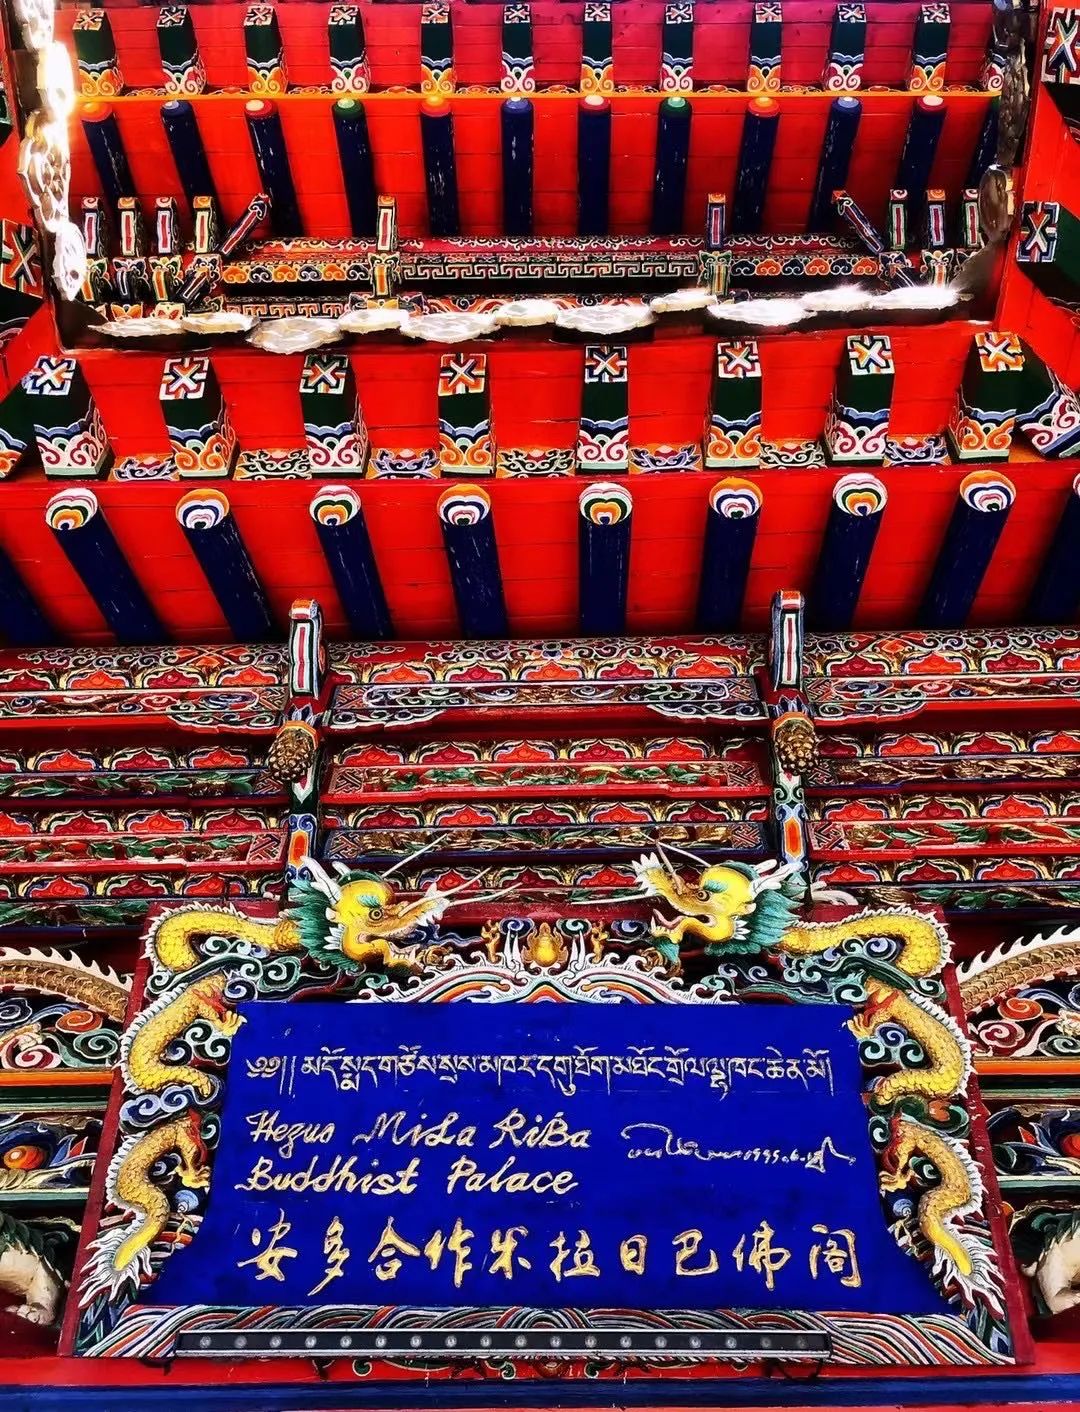 ༄༅།། མདོ་སྨད་གཙོས་སྲས་མཁར་དགུ་ཐོག་མཐོང་གྲོལ་ལྷ་ཁང་ཆེན་མོ།
Hezuo MiLa RiBa
Buddhist Palace
安多合作米拉日巴佛阁